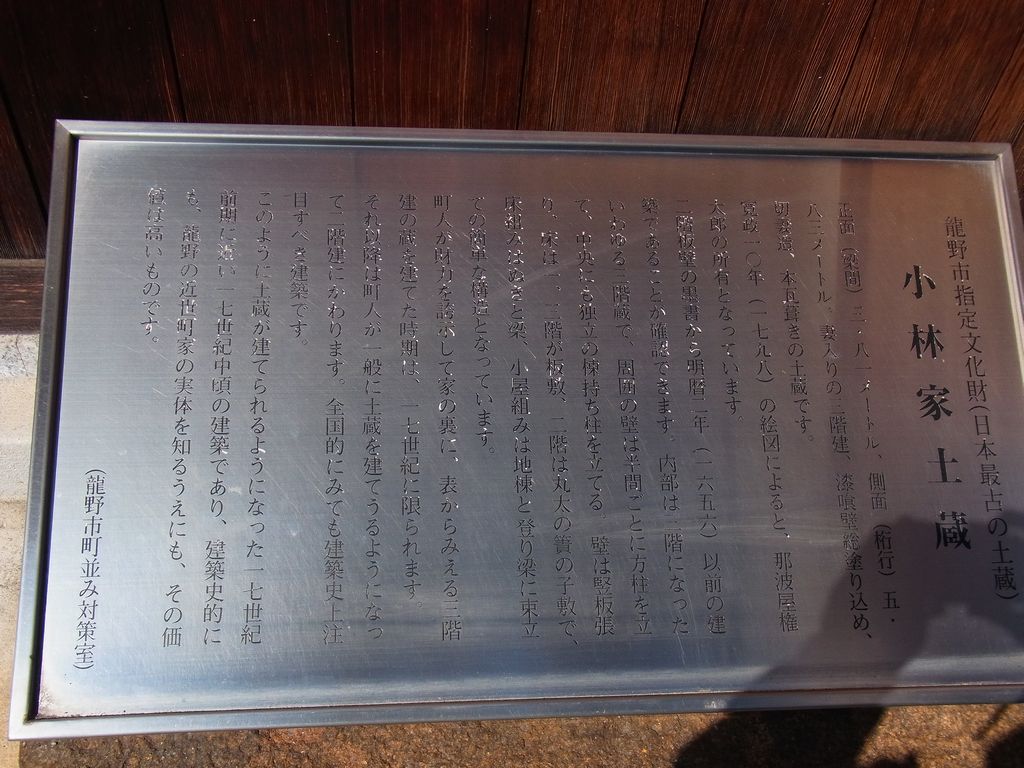 龍野市指定文化財(日本最古の土蔵)
小林家土蔵
正面(梁間)三・八一メートル、側面(桁行)五・
八三メートル、妻入りの三階建、漆喰壁総塗り込め、
切妻造、本瓦葺きの土蔵です。
寛政一〇年(一七九八)の絵図によると、那波屋権
太郎の所有となっています。
二階板壁の墨書から明暦二年(一六五六)以前の建
築であることが確認できます。内部は三階になった
いわゆる三階蔵で、周囲の壁は半間ごとに方柱を立
て、中央にも独立の棟持ち柱を立てる。壁は竪板張
り、床は一、三階が板敷、二階は丸太の簀の子敷で、
床組みはぬきと梁、小屋組みは地棟と登り梁に束立
ての簡単な構造となっています。
町人が財力を誇示して家の裏に、表からみえる三階
建の蔵を建てた時期は、一七世紀に限られます。
それ以降は町人が一般に土蔵を建てうるようになっ
て二階建にかわります。全国的にみても建築史上注
目すべき建築です。
このように土蔵が建てられるようになった一七世紀
前期に近い一七世紀中頃の建築であり、建築史的に
も、龍野の近世町家の実体を知るうえにも、その価
値は高いものです。
(龍野市町並み対策室)